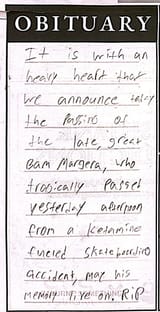 OBITUARY
It is with an
heavy heart that
we announce today
the passing of
the late, great
Bam Margera, who
tragically passed
yesterday afternoon
from a ketamine
fueled skateboarding
accident, may his
memory live on. RIP